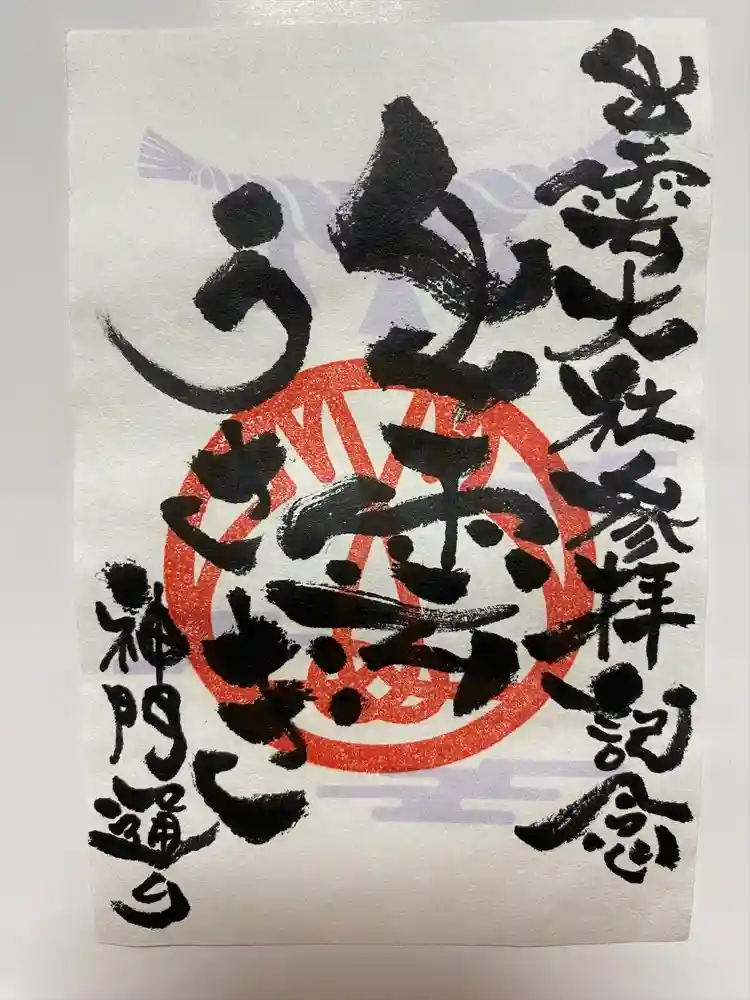 出雲大社参拝記念
出雲
うさぎさし
神門通り